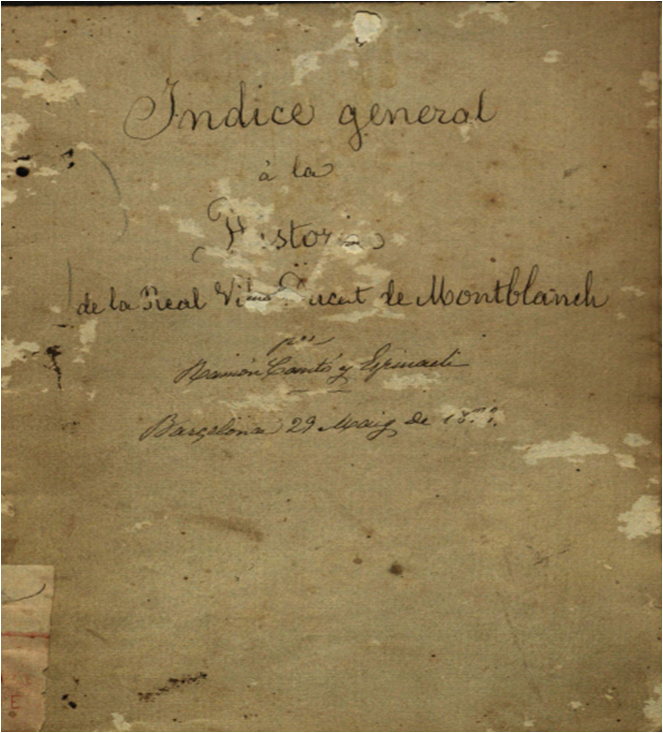 Indice general
à la
Historia
de la Real Vila y Ducat de Montblanch
por
Ramón Cantó y Espinach
Barcelona 29 Maig de